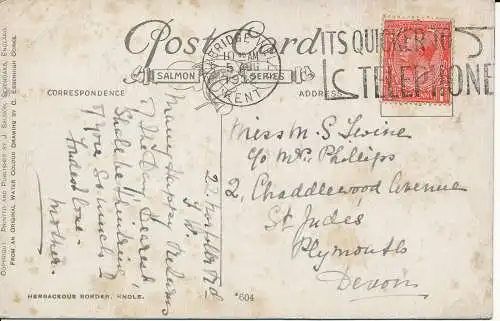 Post Card
SALMON SERIES
CORRESPONDENCE
ADDRESS
TONBRIDGE
10 AM
5 AUG
KENT
ITS QUICKER TO
TELEPHONE
22
T.W.
Many Happy Returns
of the Day Dearest
Shall be thinking
of you so much
Fondest love.
Mother.
Miss M S Irvine
c/o Mrs Phillips
2, Chaddlewood Avenue
St Jude's
Plymouth
Devon
HERBACEOUS BORDER, KNOLE.
*604
COPYRIGHT. PRINTED AND PUBLISHED BY J. SALMON, SEVENOAKS, ENGLAND.
FROM AN ORIGINAL WATER COLOUR DRAWING BY C. ESSENHIGH CORKE.